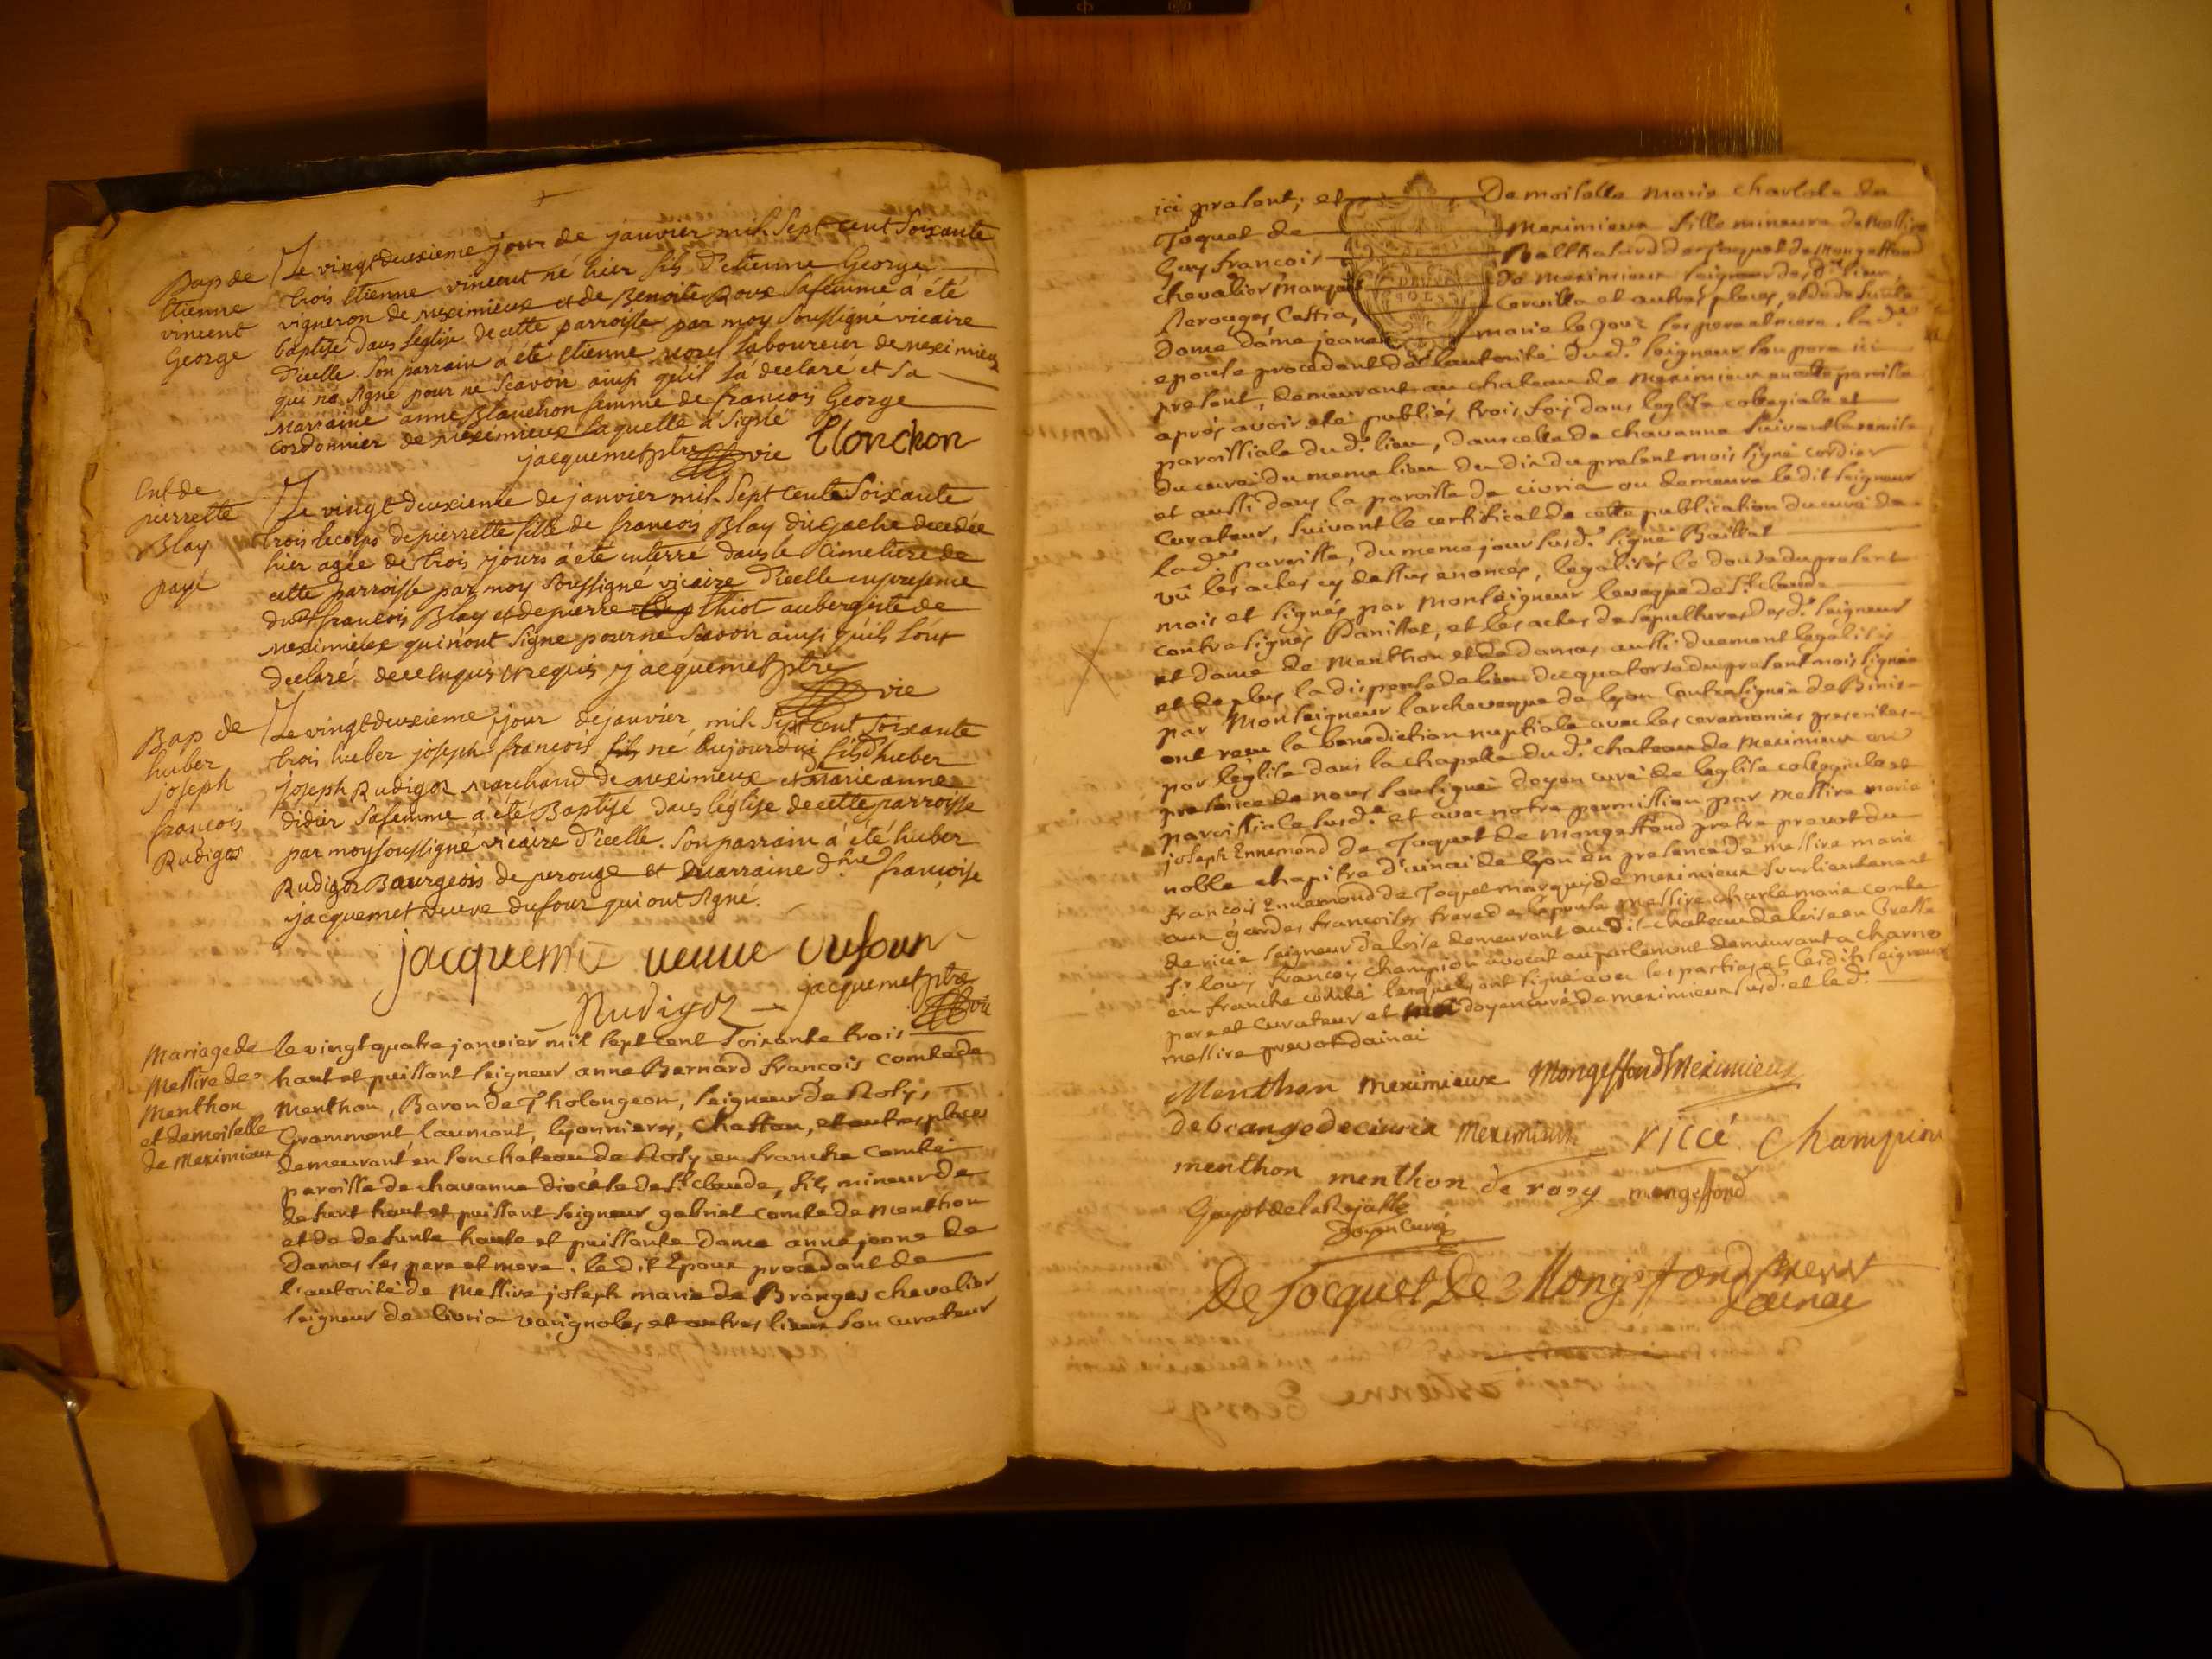 Bap de
Etienne
vincent
George
Le vingtdeuxieme jour de janvier mil Sept cent Soixante
trois Etienne vincent né hier fils d'etienne George
vigneron de meximieux et de Benoite Roux Safemme a été
baptisé dans l'église de cette parroisse par moy Soussigné vicaire
d'icelle. Son parrain a été Etienne laboureur de meximieux
qui n'a signé pour ne Scavoir ainsi qu'il l'a declaré et Sa
Marraine anne Blanchon femme de francois George
Cordonnier de Meximieux laquelle a Signé
jacquemet ptre vic Blonchon
Ent de
pierrette
Blay
payé
Le vingt deuxieme de janvier mil Sept cent Soixante
trois le corps de pierrette fille de francois Blay dit Gache decedée
hier agée de trois jours a été enterré dans le Cimetiere de
cette parroisse par moy Soussigné vicaire d'icelle en presence
dudt francois Blay et de pierre thiot aubergiste de
meximieux qui n'ont Signé pour ne Scavoir ainsi qu'ils l'ont
declaré de ce enquis et requis jacquemet ptre
vic
Bap de
huber
joseph
francois
Rudigoz
Le vingtdeuxieme jour de janvier mil Sept cent Soixante
trois huber joseph francois fils né aujourdui fils d'huber
joseph Rudigoz Marchand de meximieux et de Marie anne
didier Safemme a été Baptisé dans l'église de cette parroisse
par moy soussigné vicaire d'icelle. Son parrain a été huber
Rudigoz Bourgeois de perouge et Marraine d.me francoise
jacquemet veuve dufour qui ont Signé.
jacquemet veuve dufour
Rudigoz jacquemet ptre
vic
Mariage de
Messire de
Menthon
et demoiselle
de Meximieux
le vingt quatre janvier mil sept cent soixante trois
haut et puissant seigneur anne Bernard francois comte de
Menthon, Baron de Tholongeon, seigneur de Rosy,
Grammont, laumont, lyonnieres, Chattou, et autres places
demeurant en son chateau de Rosy en franche Comté
paroisse de chavanne diocese de St claude, fils mineur de
defunt haut et puissant seigneur gabriel comte de Menthon
et de defunte haute et puissante dame anne jeane de
Damas ses pere et mere. ledit Epoux procedant de
l'autorité de Messire joseph marie de Branges chevalier
seigneur de Civria varignoles et autres lieux son curateur
ici present; et Demoiselle Marie Charlote de
Joquet de Meximieux fille mineure de Messire
Guy francois Balthasard de Jocquet de Mongeffond
chevalier marquis de Meximieux seigneur des d. lieux
Perouges Cattia, et autres places, et de defunte
Dame dame jeane marie le Jour ses pere et mere. la d.e
epouse procedant de l'autorité du d. seigneur son pere ici
present, demeurant au chateau de Meximieux en cette paroisse
aprés avoir eté publiés trois fois dans l'eglise collegiale et
paroissiale du d. lieu, dans celle de chavanne suivant la remise
du curé du meme lieu du dix du present mois signé cordier
et aussi dans la paroisse de civria ou demeure ledit seigneur
Curateur, suivant le certificat de cette publication du curé de
la d. paroisse, du meme jour susd. signé Baillat
vû les actes cy dessus enoncés, legalisés le douze du present
mois et signés par Monseigneur l'eveque de St claude
contresignés Panisset, et les actes de sepultures des d. seigneur
et dame de Menthon et de Damas aussi duement legalisés
et de plus la dispense de lieu du quatorze du present mois signée
par Monseigneur l'archeveque de lyon contresignée de Binis
ont recu la benediction nuptiale avec les ceremonies prescrites
par l'eglise dans la chapelle du d. chateau de Meximieux en
presence de nous soussigné doyen curé de l'eglise collegiale et
paroissiale susd.e et avec notre permission par Messire marie
joseph Ennemond de Jocquet de Mongeffond pretre prevot du
noble chapitre d'ainai de lyon en presence de messire marie
francois Ennemond de Joquet marquis de Meximieux souslieutenant
aux gardes francoises frere de l'epouse Messire charle marie comte
de ricé seigneur de loise demeurant audit chateau de loise en Bresse
Sr louis francois Champion avocat au parlement demeurant a charno
en franche comté lesquels ont signé avec les parties et lesdits seigneurs
pere et curateur et doyen curé de meximieux susd. et led.
messire prevot dainai
Menthon meximieux Mongeffond Meximieux
de brange de civria Meximieux riccé Champion
menthon menthon de rosy mongeffond
Guyot de la
Doyen Curé
De Jocquet De Mongeffond prevot
dainai